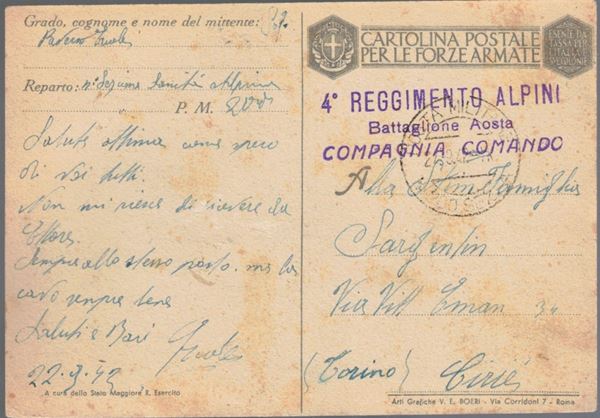 Grado, cognome e nome del mittente:
Reparto: Sezione Sanità Alpina
P. M. 200
Salute ottima come spero
di voi tutti.
Non mi riesce di ricevere da
Ettore.
Sempre allo stesso posto, me la
cavo sempre bene
Saluti e Baci
22-9-42
A cura dello Stato Maggiore R. Esercito
CARTOLINA POSTALE
PER LE FORZE ARMATE
ESENTE DA
TASSA PER
L'ITALIA
4° REGGIMENTO ALPINI
Battaglione Aosta
COMPAGNIA COMANDO
POSTA MILITARE
Alla Stim. Famiglia
Sargentin
Via Vitt Eman 34
(Torino) Ciriè
Arti Grafiche V. E. BOERI - Via Corridoni 7 - Roma